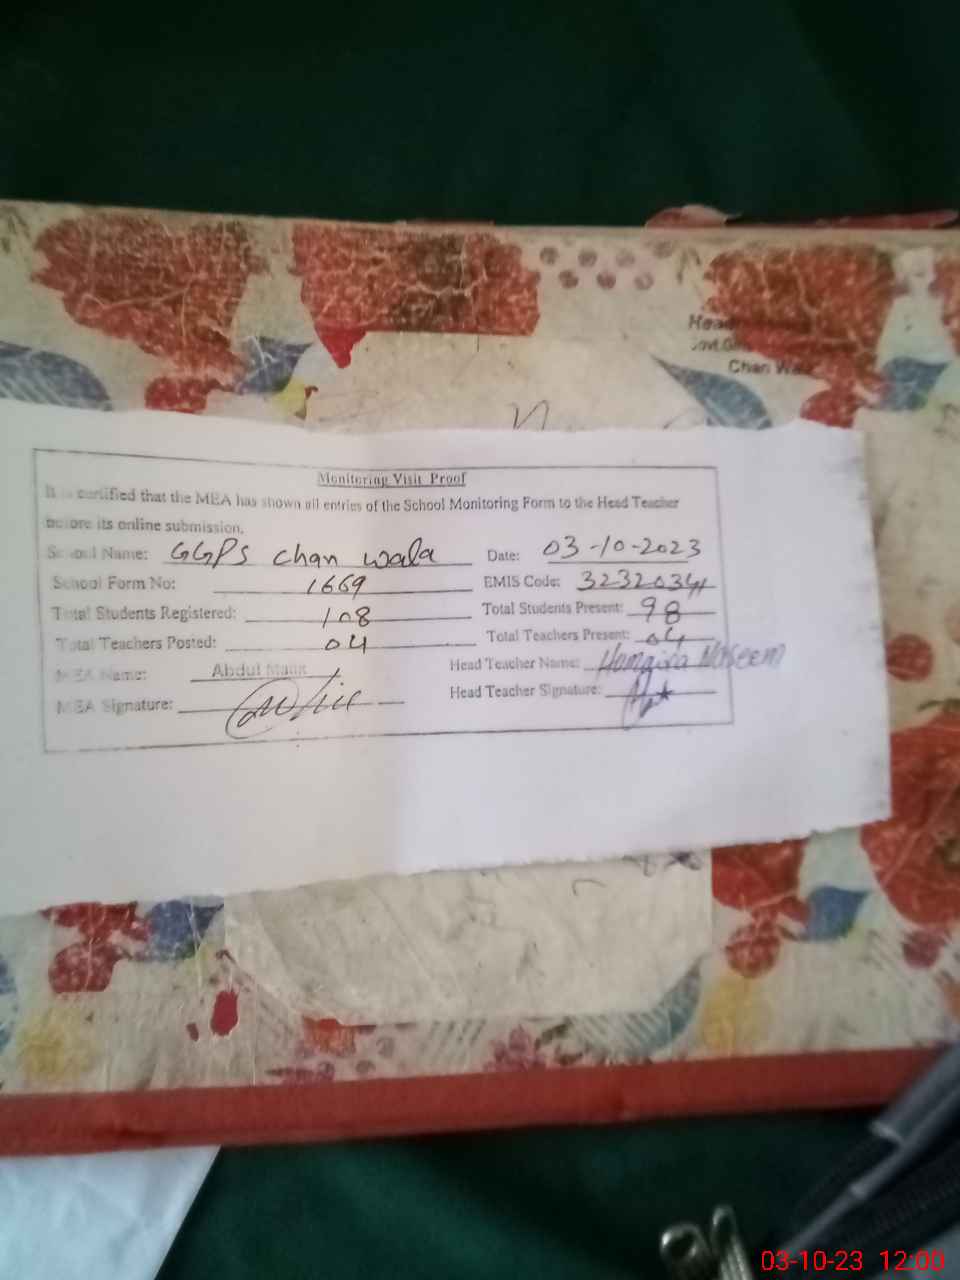 Chan
Monitoring Visit Proof
It is certified that the MEA has shown all entries of the School Monitoring Form to the Head Teacher
before its online submission.
School Name: GGPS chan wala Date: 03-10-2023
School Form No: 1669 EMIS Code: 32320344
Total Students Registered: 108 Total Students Present: 98
Total Teachers Posted: 04 Total Teachers Present: 04
MEA Name: Abdul Malik Head Teacher Name: Homaira Naseem
MEA Signature: Head Teacher Signature:
03-10-23 12:00